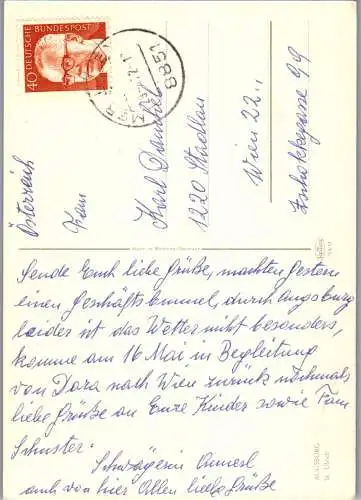 DEUTSCHE BUNDESPOST
40
8851
Österreich
Fam
Karl Danihel
1220 Stadlau
Wien 22.,
Zschokkegasse 99
Sende Euch liebe Grüße, machten gestern
einen Geschäftsbummel, durch Augsburg
leider ist das Wetter nicht besonders,
komme am 16 Mai in Begleitung
von Dora nach Wien zurück nochmals
liebe Grüße an Eure Kinder sowie Fam
Schuster.
Schwägerin Annerl
auch von hier Allen liebe Grüße
AUGSBURG
St. Ulrich